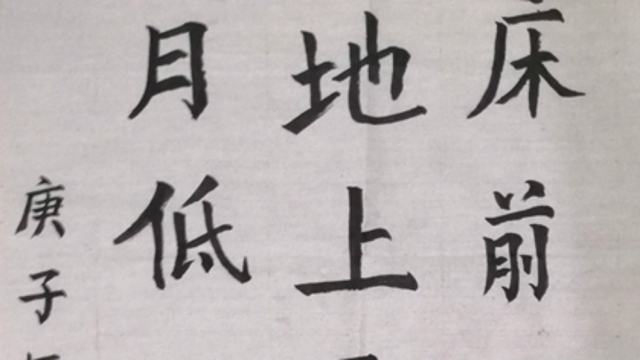 床前
地上
月低
庚子